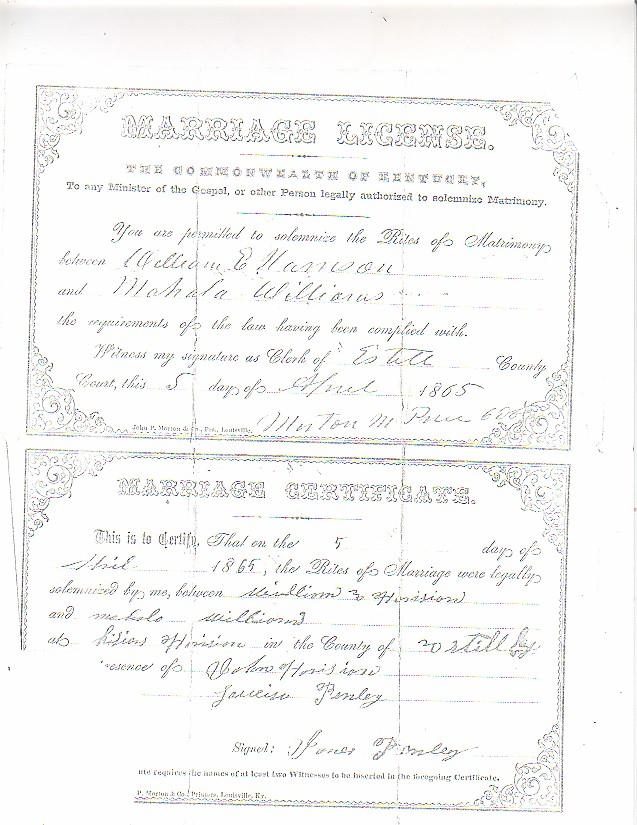 MARRIAGE LICENSE.
THE COMMONWEALTH OF KENTUCKY,
To any Minister of the Gospel, or other Person legally authorized to solemnize Matrimony.
You are permitted to solemnize the Rites of Matrimony
between William E Harrison
and Mahala Williams
the requirements of the law having been complied with.
Witness my signature as Clerk of Estill County
Court, this 5 day of April 1865
John P. Morton & Co., Louisville. Morton M Price
MARRIAGE CERTIFICATE.
This is to Certify, That on the 5 day of
April 1865, the Rites of Marriage were legally
solemnized by me, between William Horision
and mahala williams
at Horision in the County of Estill
resence of John Horision
Penley
Signed: Penley
ute requires the names of at least two Witnesses to be inserted in the foregoing Certificate.
P. Morton & Co., Printers, Louisville, Ky.